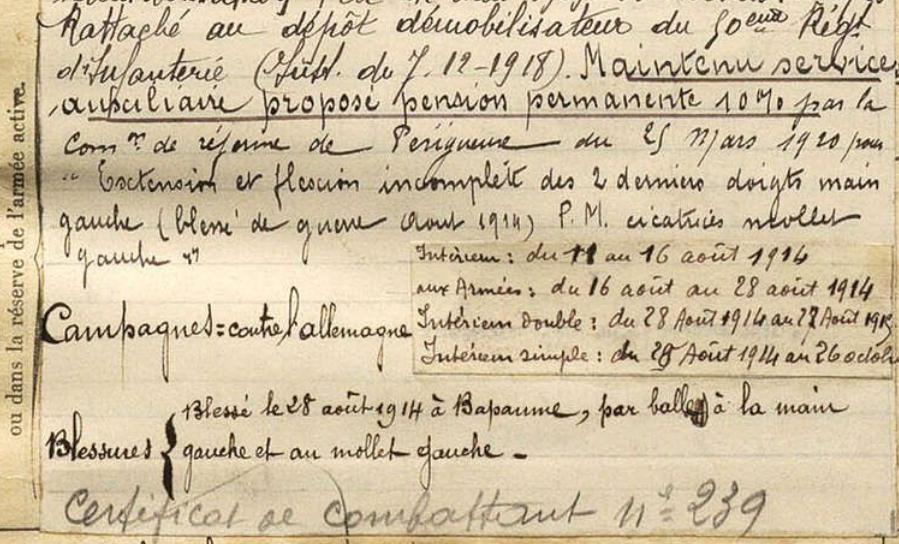 Rattaché au dépôt démobilisateur du 50ème Régt
d'Infanterie (Suppl. du 7.12-1918). Maintenu service
auxiliaire proposé pension permanente 10% par la
Comon de réforme de Périgueux du 25 Mars 1920 pour
"Exctension et flexion incomplète des 2 derniers doigts main
gauche (blessé de guerre Aout 1914) P.M. cicatrices mollet
gauche"
Intérieur : du 11 au 16 août 1914
aux Armées : du 16 août au 28 août 1914
Campagnes = contre l'allemagne
Intérieur double : du 28 Août 1914 au 27 Août 191
Intérieur simple : du 28 Août 1914 au 26 octob
Blessures { Blessé le 28 août 1914 à Bapaume, par balle à la main
gauche et au mollet gauche -
Certificat de Combattant n° 239
ou dans la réserve de l'armée active.